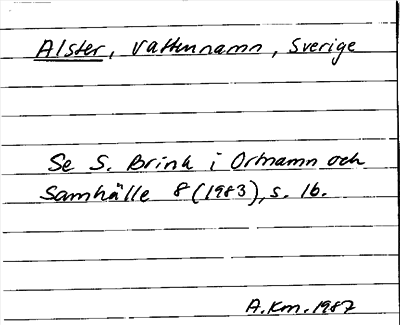 Alster, Vattennamn, Sverige
Se S. Brink i Ortnamn och
Samhälle 8 (1983), s. 16.
A.Km. 1987